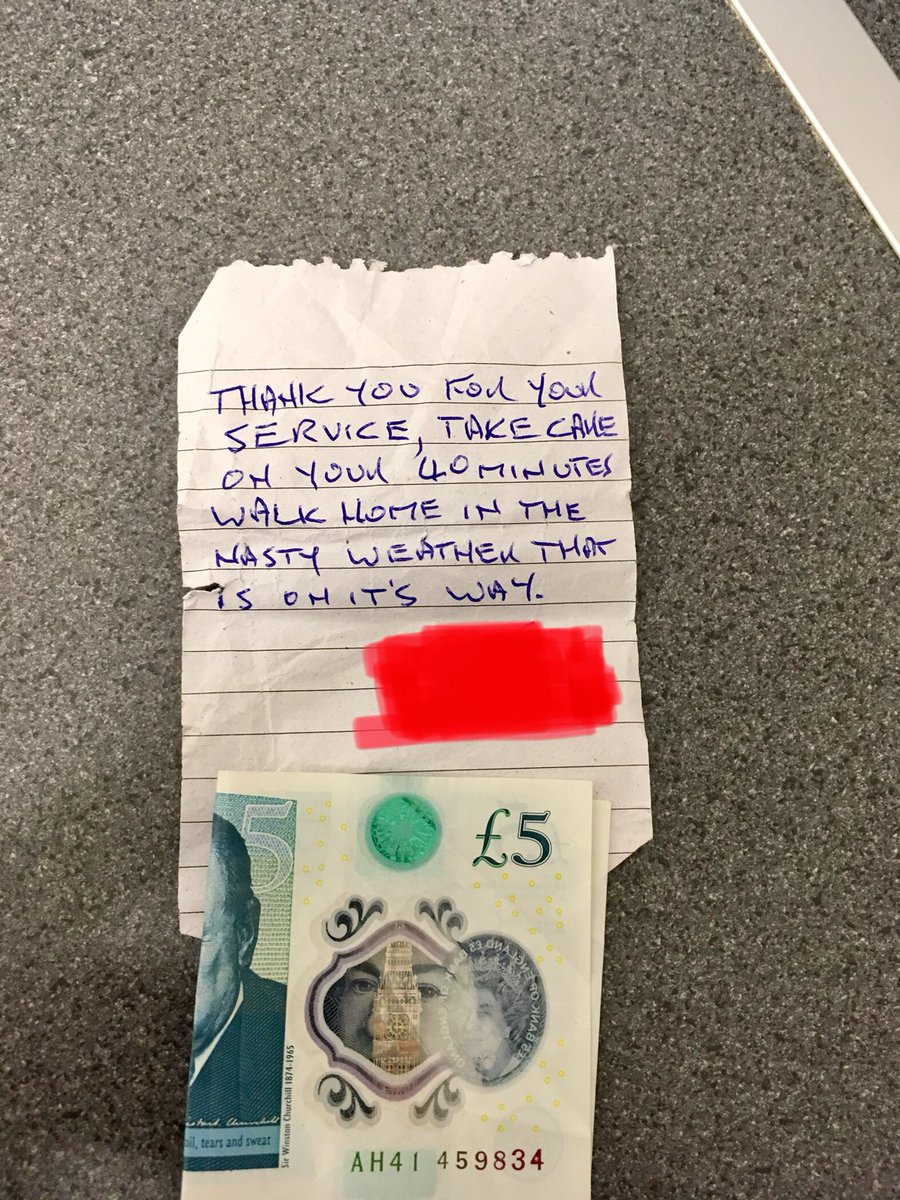 THANK YOU FOR YOUR
SERVICE, TAKE CARE
ON YOUR 40 MINUTES
WALK HOME IN THE
NASTY WEATHER THAT
IS ON IT'S WAY.
5
£5
Sir Winston Churchill 1874-1965
oil, tears and sweat
AH41 459834